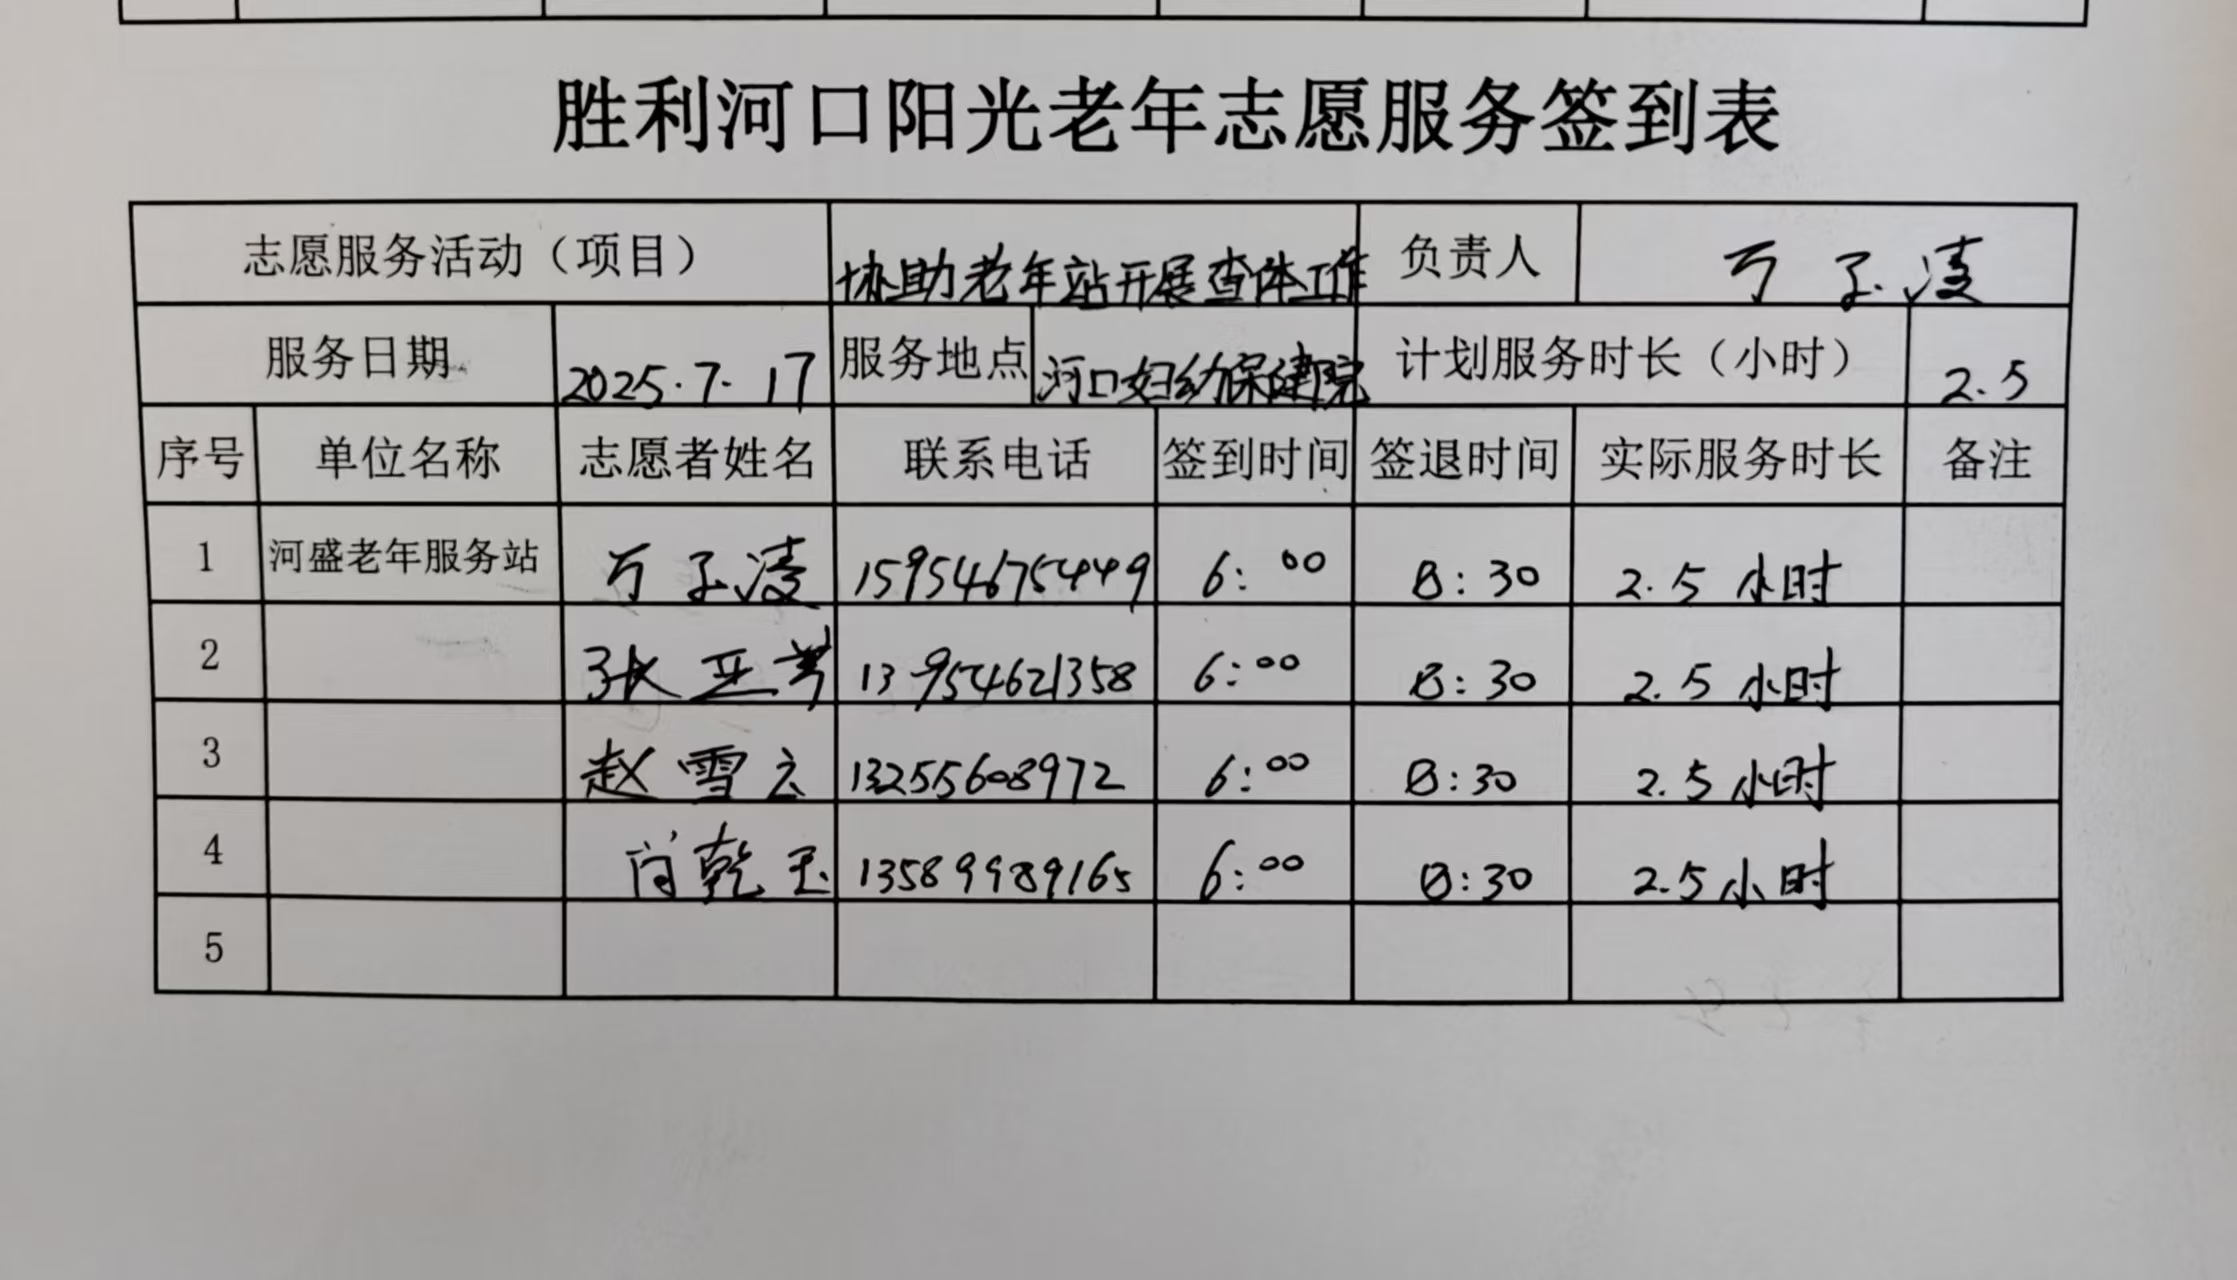 胜利河口阳光老年志愿服务签到表
志愿服务活动（项目） 协助老年站开展查体工作 负责人 万子凌
服务日期 2025.7.17 服务地点 河口妇幼保健院 计划服务时长（小时） 2.5
序号 单位名称 志愿者姓名 联系电话 签到时间 签退时间 实际服务时长 备注
1 河盛老年服务站 万子凌 15954675449 6:00 8:30 2.5小时
2 张亚芳 13954621358 6:00 8:30 2.5小时
3 赵雪云 13255608972 6:00 8:30 2.5小时
4 乾玉 13589989165 6:00 8:30 2.5小时
5